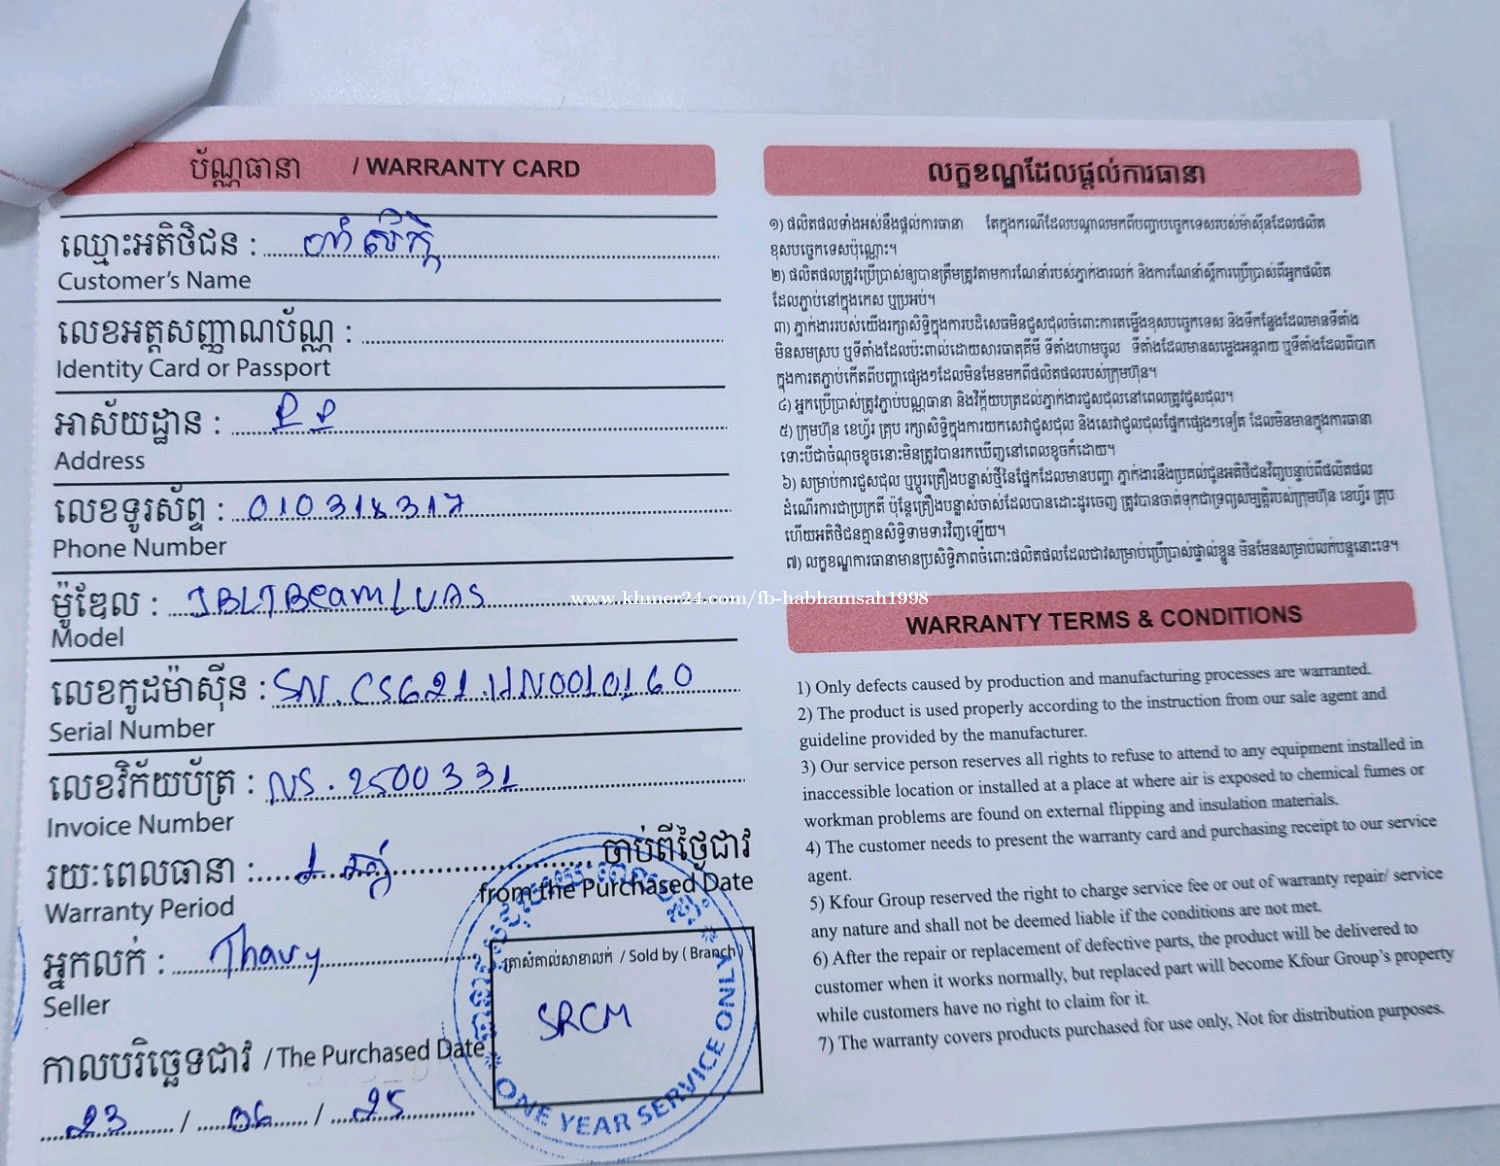 ប័ណ្ណធានា / WARRANTY CARD
ឈ្មោះអតិថិជន :
Customer's Name
លេខអត្តសញ្ញាណប័ណ្ណ :
Identity Card or Passport
អាស័យដ្ឋាន : PP
Address
លេខទូរស័ព្ទ : 010318317
Phone Number
ម៉ូឌែល :
Model
លេខកូដម៉ាស៊ីន :
Serial Number
លេខវិក័យប័ត្រ : NS.2500331
Invoice Number
រយៈពេលធានា : 1 ឆ្នាំ ចាប់ពីថ្ងៃជាវ
Warranty Period from the Purchased Date
អ្នកលក់ : Thavy
Seller
ត្រាសំគាល់សាខាលក់ / Sold by ( Branch )
SRCM
កាលបរិច្ឆេទជាវ / The Purchased Date
23 / 06 / 25
ONE YEAR SERVICE ONLY
លក្ខខណ្ឌដែលផ្តល់ការធានា
១) ផលិតផលទាំងអស់នឹងផ្តល់ការធានា តែក្នុងករណីដែលបណ្តាលមកពីបញ្ហាបច្ចេកទេសរបស់ម៉ាស៊ីនដែលផលិត
ខុសបច្ចេកទេសប៉ុណ្ណោះ។
២) ផលិតផលត្រូវប្រើប្រាស់ឲ្យបានត្រឹមត្រូវតាមការណែនាំរបស់ភ្នាក់ងារលក់ និងការណែនាំស្តីការប្រើប្រាស់ពីអ្នកផលិត
ដែលភ្ជាប់នៅក្នុងកេស ឬប្រអប់។
៣) ភ្នាក់ងាររបស់យើងរក្សាសិទ្ធិក្នុងការបដិសេធមិនជួសជុលចំពោះការតម្លើងខុសបច្ចេកទេស និងទីកន្លែងដែលមានទីតាំង
មិនសមស្រប ឬទីតាំងដែលប៉ះពាល់ដោយសារធាតុគីមី ទីតាំងហាមចូល ទីតាំងដែលមានសម្លេងអន្តរាយ ឬទីតាំងដែលពិបាក
ក្នុងការតភ្ជាប់កើតពីបញ្ហាផ្សេងៗដែលមិនមែនមកពីផលិតផលរបស់ក្រុមហ៊ុន។
៤) អ្នកប្រើប្រាស់ត្រូវភ្ជាប់បណ្ណធានា និងវិក្ក័យបត្រដល់ភ្នាក់ងារជួសជុលនៅពេលត្រូវជួសជុល។
៥) ក្រុមហ៊ុន ខេហ្វ័រ គ្រុប រក្សាសិទ្ធិក្នុងការយកសេវាជួសជុល និងសេវាជួលជុលផ្នែកផ្សេងៗទៀត ដែលមិនមានក្នុងការធានា
ទោះបីជាចំណុចខូចនោះមិនត្រូវបានរកឃើញនៅពេលខូចក៏ដោយ។
៦) សម្រាប់ការជួសជុល ឬប្តូរគ្រឿងបន្លាស់ថ្មីនៃផ្នែកដែលមានបញ្ហា ភ្នាក់ងារនឹងប្រគល់ជូនអតិថិជនវិញបន្ទាប់ពីផលិតផល
ដំណើរការជាប្រក្រតី ប៉ុន្តែគ្រឿងបន្លាស់ចាស់ដែលបានដោះដូរចេញ ត្រូវបានចាត់ទុកជាទ្រព្យសម្បត្តិរបស់ក្រុមហ៊ុន ខេហ្វ័រ គ្រុប
ហើយអតិថិជនគ្មានសិទ្ធិទាមទារវិញឡើយ។
៧) លក្ខខណ្ឌការធានាមានប្រសិទ្ធិភាពចំពោះផលិតផលដែលជាវសម្រាប់ប្រើប្រាស់ផ្ទាល់ខ្លួន មិនមែនសម្រាប់លក់បន្តនោះទេ។
www.khmer24.com/fb-habhamsah1998
WARRANTY TERMS & CONDITIONS
1) Only defects caused by production and manufacturing processes are warranted.
2) The product is used properly according to the instruction from our sale agent and
guideline provided by the manufacturer.
3) Our service person reserves all rights to refuse to attend to any equipment installed in
inaccessible location or installed at a place at where air is exposed to chemical fumes or
workman problems are found on external flipping and insulation materials.
4) The customer needs to present the warranty card and purchasing receipt to our service
agent.
5) Kfour Group reserved the right to charge service fee or out of warranty repair/ service
any nature and shall not be deemed liable if the conditions are not met.
6) After the repair or replacement of defective parts, the product will be delivered to
customer when it works normally, but replaced part will become Kfour Group's property
while customers have no right to claim for it.
7) The warranty covers products purchased for use only, Not for distribution purposes.